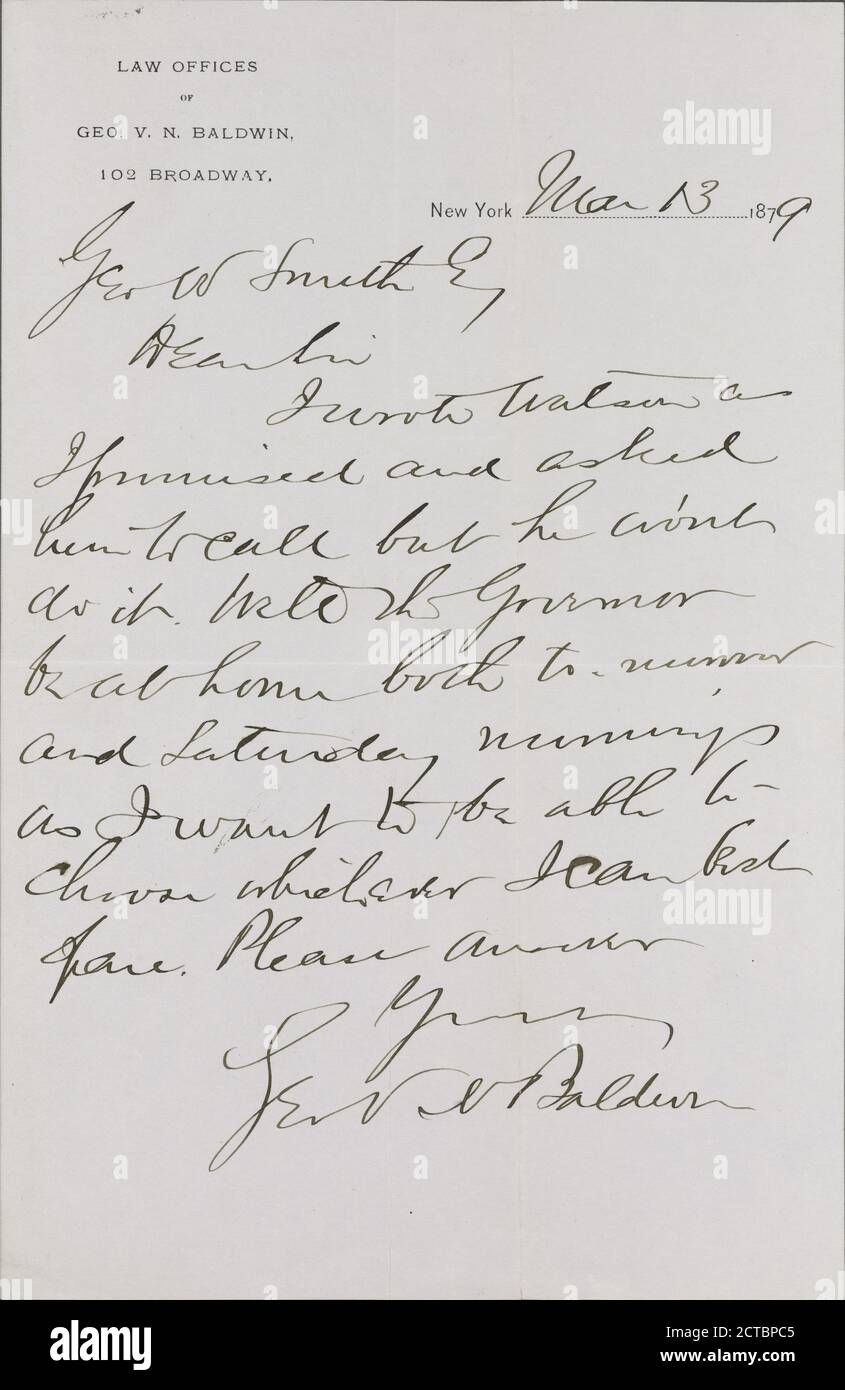 LAW OFFICES
OF
GEO. V. N. BALDWIN,
102 BROADWAY,
New York Mar 13 1879
Geo W Smith Esq
Dear Sir
I wrote Watson as
I promised and asked
him to call but he wont
do it. Will the Governor
be at home both to-morrow
and Saturday mornings
as I want to be able to
choose whichever I can best
spare. Please answer
Yours
Geo V N Baldwin
alamy
Image ID: 2CTBPC5
www.alamy.com